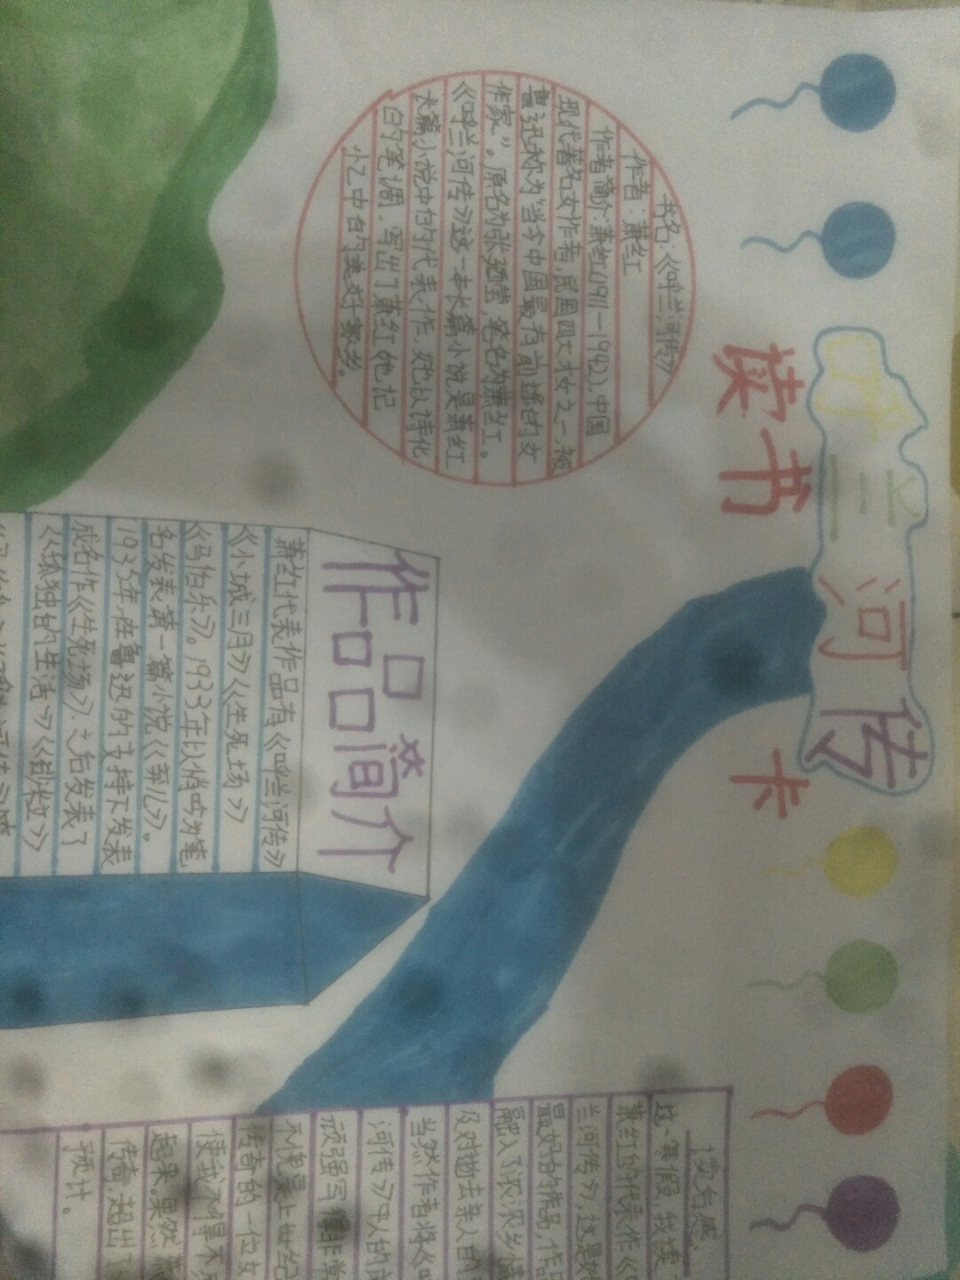 呼兰河传
读书卡
书名:《呼兰河传》
作者:萧红
作者简介:萧红(1911—1942),中国
现代著名女作者,民国四大才女之一,被
鲁迅称为“当今中国最有前途的女
作家”。原名为张廼莹,笔名为萧红。
《呼兰河传》这一本长篇小说是萧红
长篇小说中的代表作,她以诗化
的笔调,写出了萧红她记
忆中的美好家乡。
作品简介
萧红代表作品有《呼兰河传》
《小城三月》《生死场》
《马伯乐》。1933年以悄吟为笔
名发表第一篇小说《弃儿》。
1935年在鲁迅的支持下发表
成名作《生死场》.之后发表了
《孤独的生活》《砂粒》
读有感
这一寒假,我读
萧红的代表作《
兰河传》,这是她
最好的作品,作品
融入了浓浓乡情
及对逝去亲人的
当然作者将《
河传》中人的
顽强写得非常
不愧是上世纪
传奇的一位女
使我不得不
起来。果然
传奇,超出了
预计。